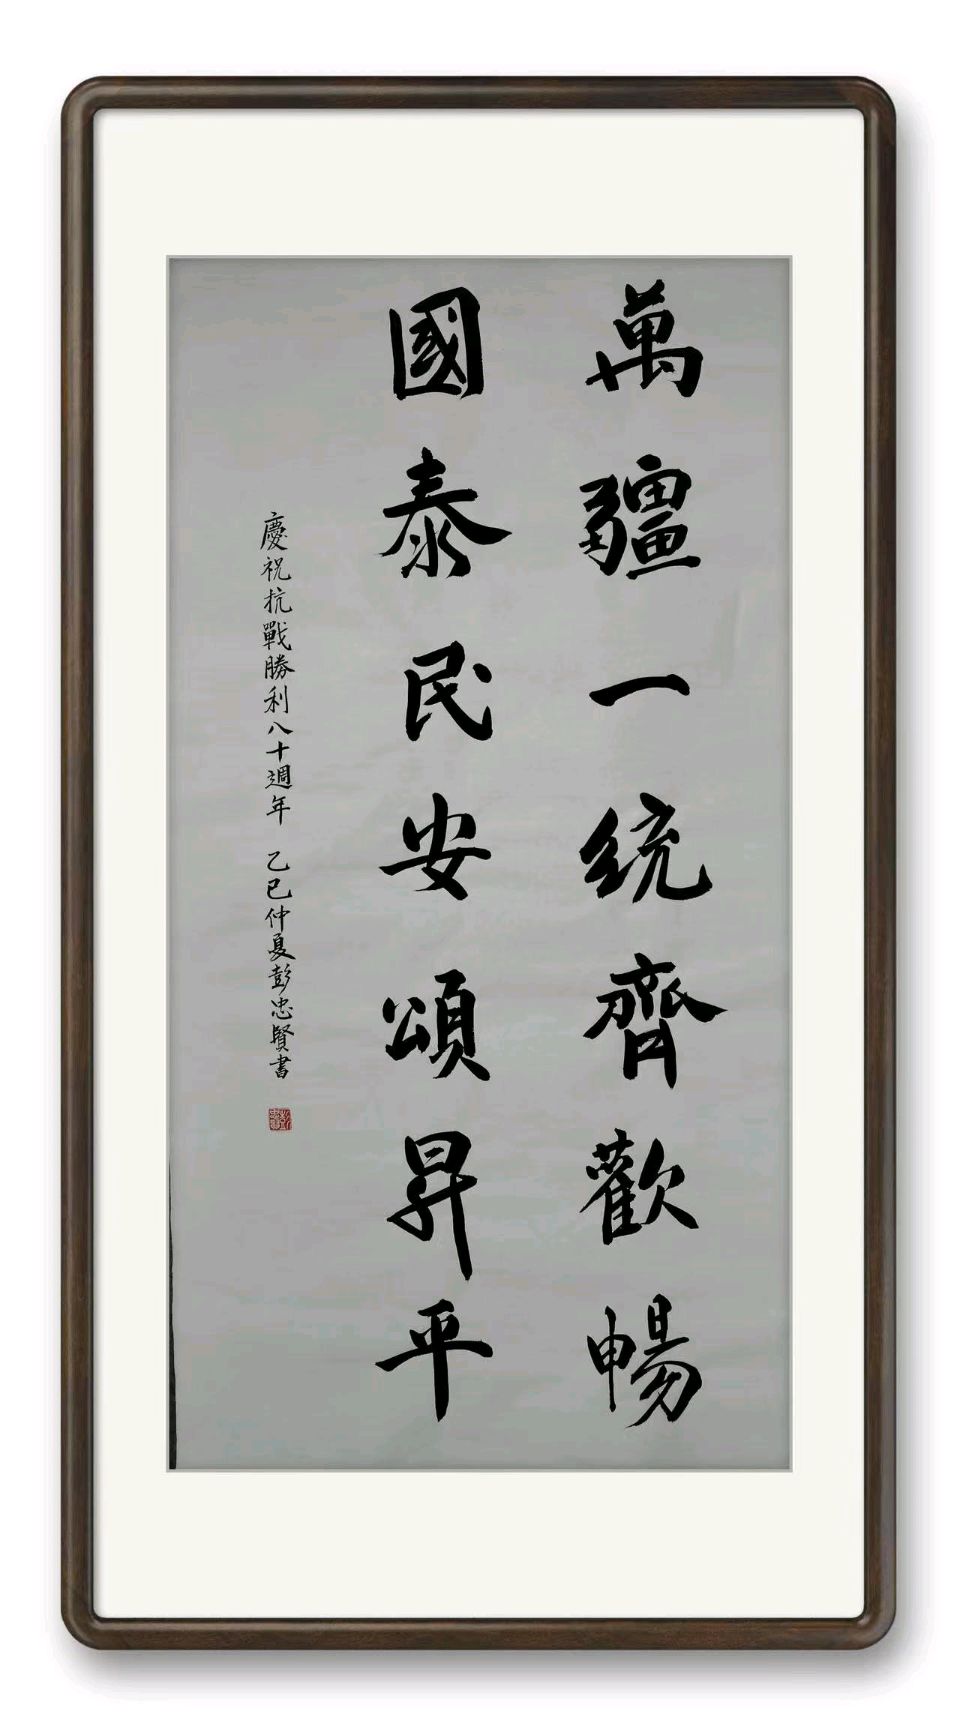 萬疆一统齊歡暢
國泰民安頌昇平
慶祝抗戰勝利八十週年 乙巳仲夏彭忠賢書